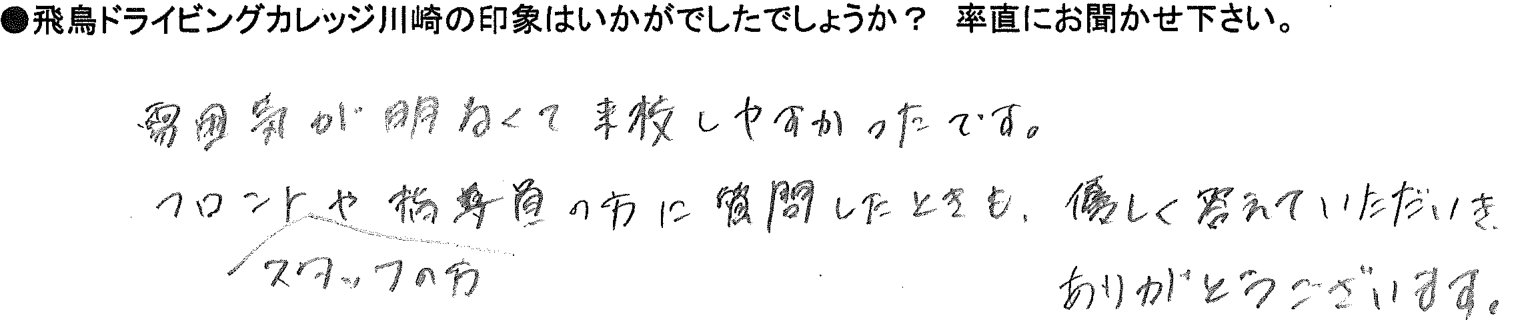 ●飛鳥ドライビングカレッジ川崎の印象はいかがでしたでしょうか？ 率直にお聞かせ下さい。
雰囲気が明るくて来校しやすかったです。
フロントや指導員の方に質問したときも、優しく答えていただいき
スタッフの方
ありがとうございます。